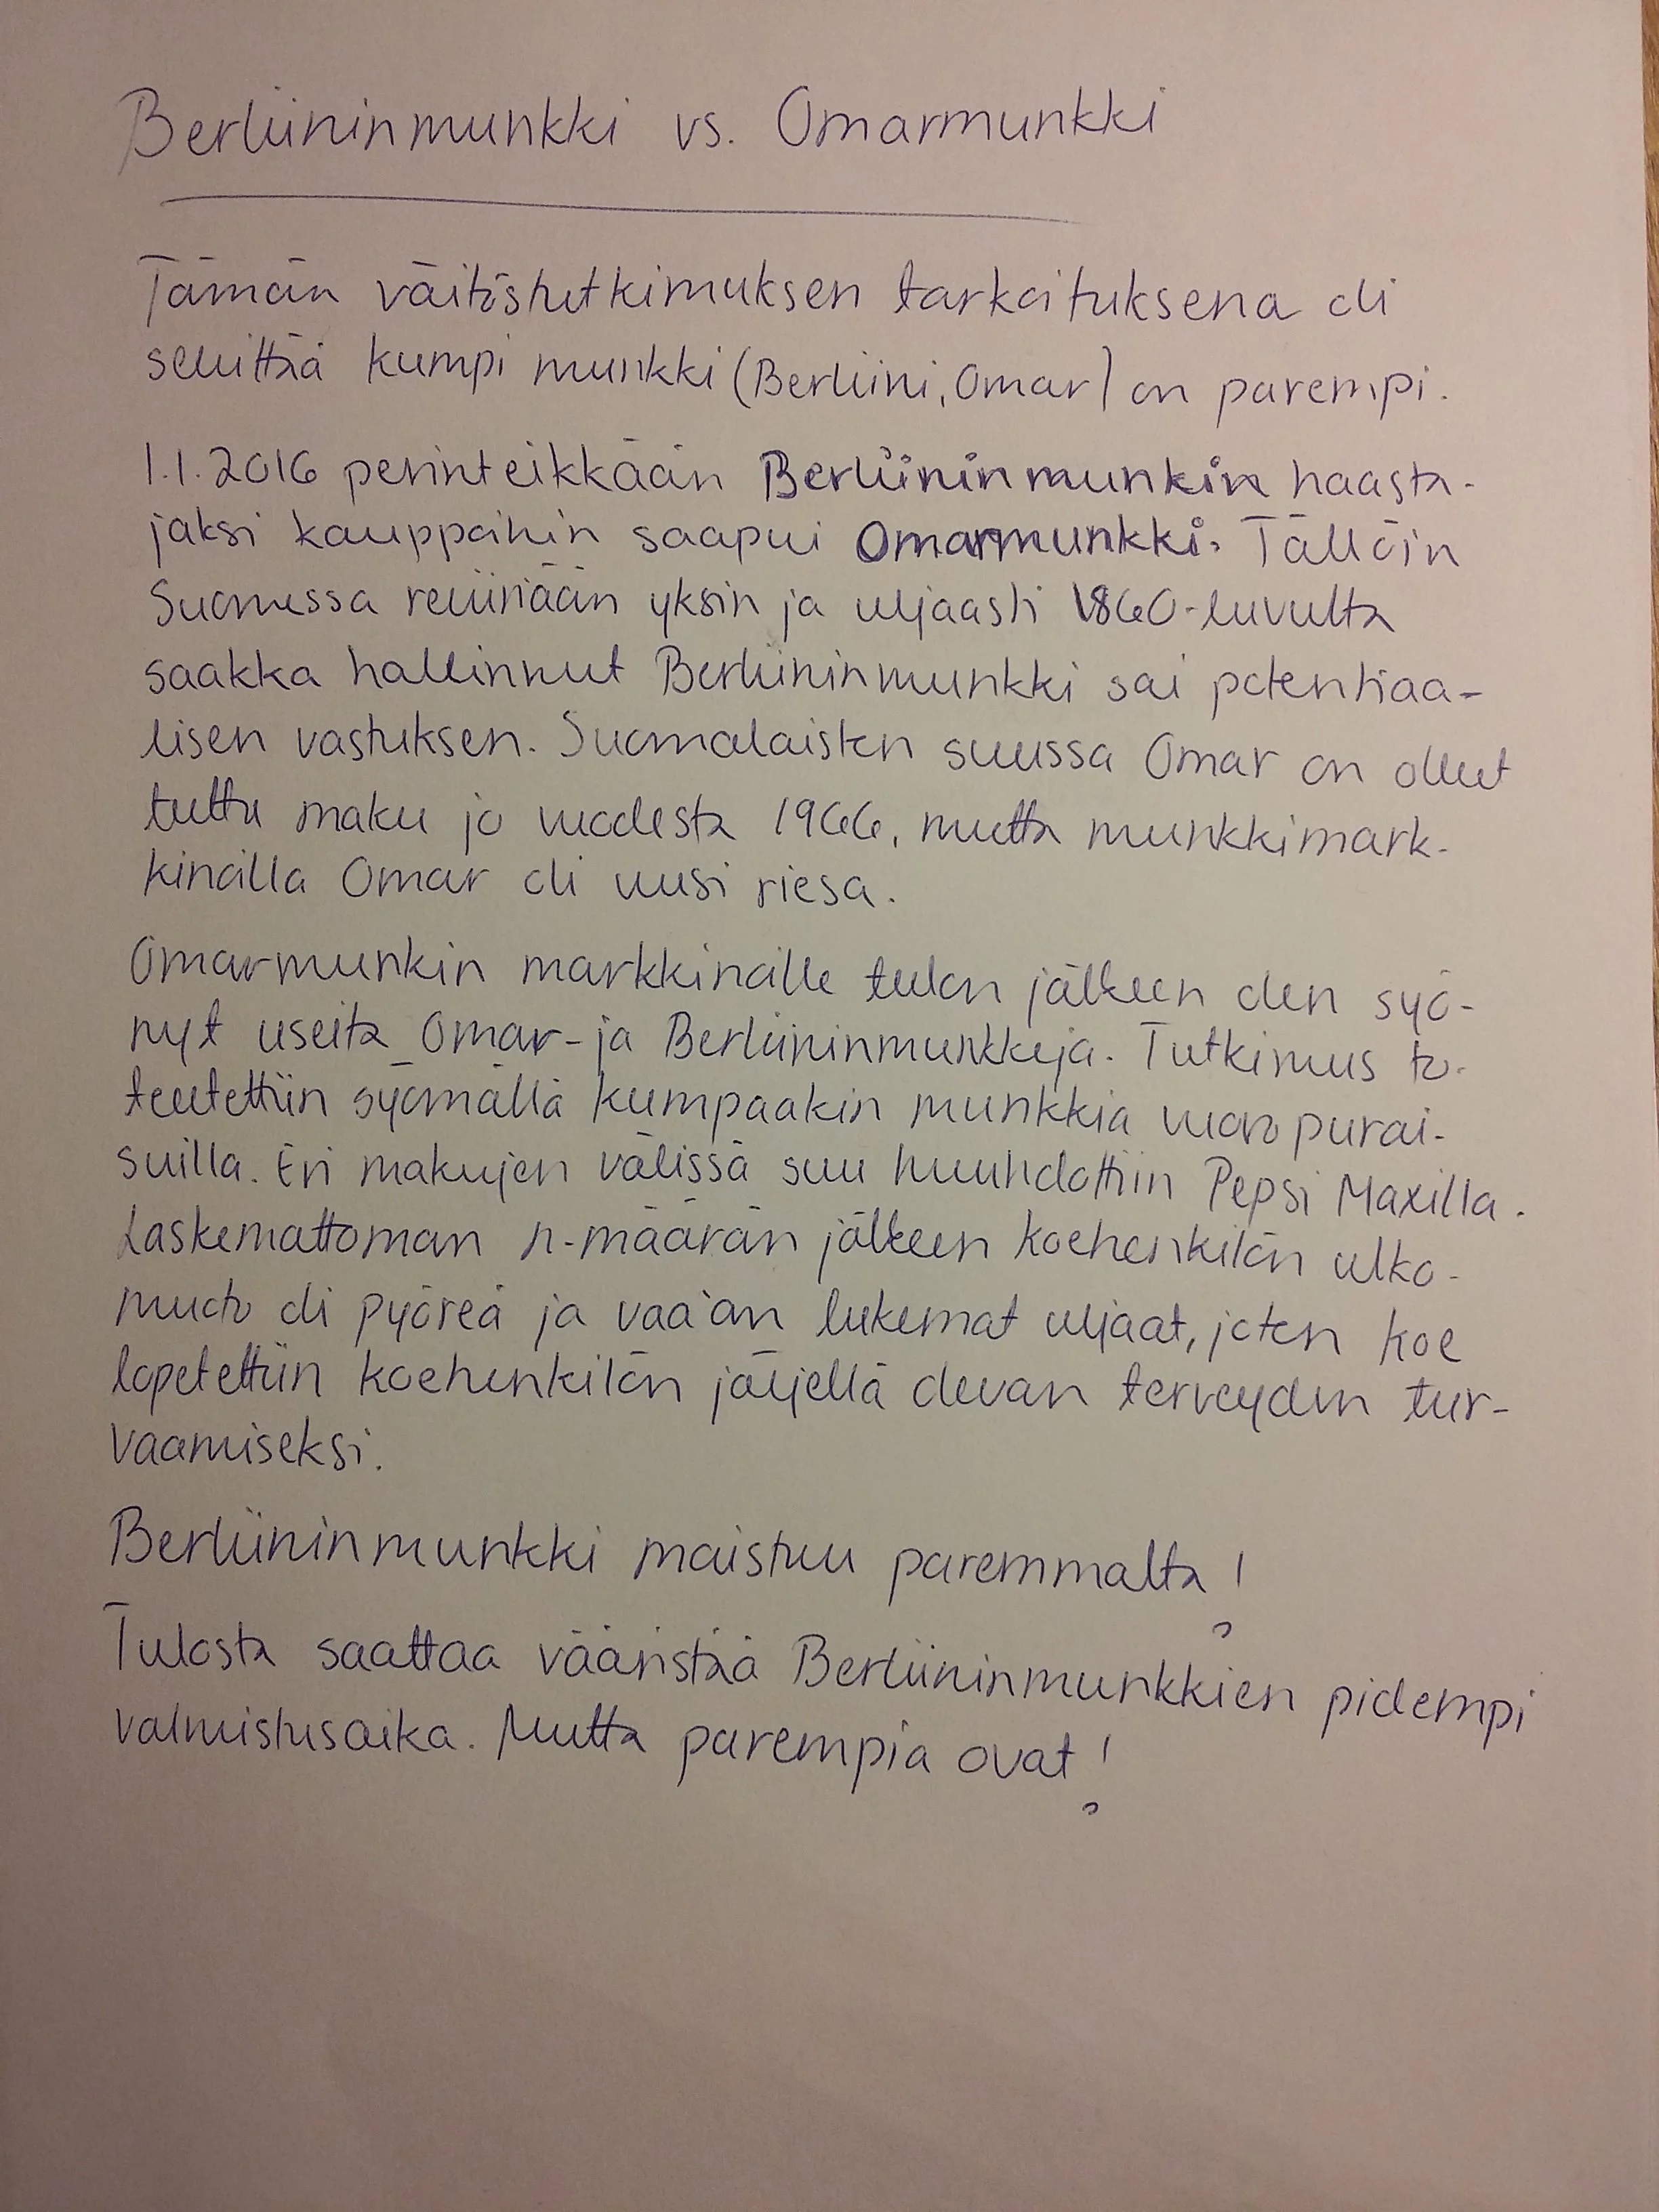 Berliininmunkki vs. Omarmunkki
Tämän väitöstutkimuksen tarkoituksena oli
selvittää kumpi munkki (Berliini, Omar) on parempi.
1.1.2016 perinteikkään Berliininmunkin haasta-
jaksi kauppoihin saapui Omarmunkki. Tällöin
Suomessa reviiriään yksin ja uljaasti 1860-luvulta
saakka hallinnut Berliininmunkki sai potentiaa-
lisen vastuksen. Suomalaisten suussa Omar on ollut
tuttu maku jo vuodesta 1966, mutta munkkimark-
kinoilla Omar oli uusi riesa.
Omarmunkin markkinoille tulon jälkeen olen syö-
nyt useita Omar- ja Berliininmunkkeja. Tutkimus to-
teutettiin syömällä kumpaakin munkkia vuoropurai-
suilla. Eri makujen välissä suu huuhdottiin Pepsi Maxilla.
Laskemattoman n-määrän jälkeen koehenkilön ulko-
muoto oli pyöreä ja vaa'an lukemat uljaat, joten koe
lopetettiin koehenkilön jäljellä olevan terveyden tur-
vaamiseksi.
Berliininmunkki maistuu paremmalta!
Tulosta saattaa vääristää Berliininmunkkien pidempi
valmistusaika. Mutta parempia ovat!